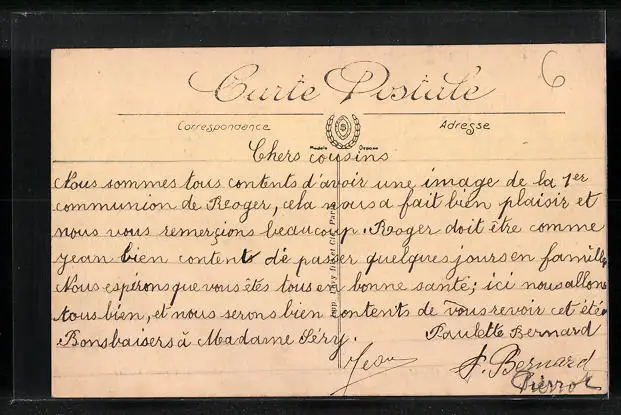 6
Carte Postale
Correspondance Adresse
Modèle Déposé
Chers cousins
Nous sommes tous contents d'avoir une image de la 1er
communion de Reoger, cela nous a fait bien plaisir et
nous vous remerçions beaucoup. Roger doit être comme
jean bien content de passer quelques jours en famille
Nous espérons que vous êtes tous en bonne santé; ici nous allons
tous bien, et nous serons bien contents de vous revoir cet été
Bons baisers à Madame Séry. Paulette Bernard
Jean P. Bernard
Pierrot
Imp. Lévy Fils et Cie, Paris